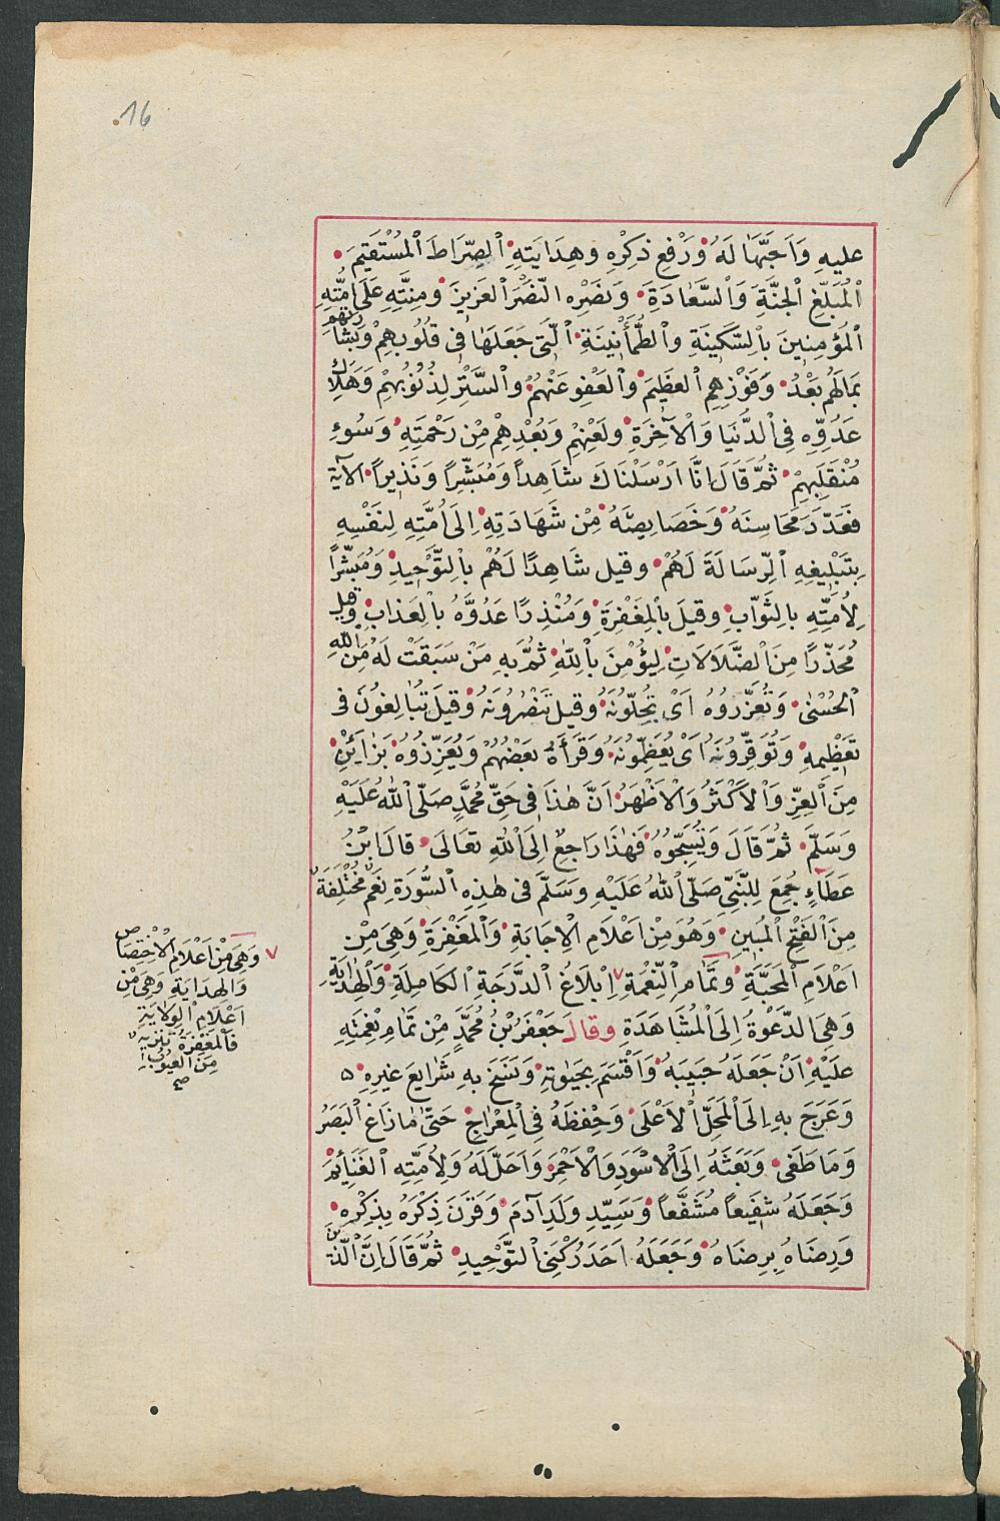 16
عليهِ وَاَحَبَّهَا لَهُ وَرَفْعِ ذِكْرِهِ وَهِدَايَتِهِ الصِّرَاطَ المُسْتَقِيمَ
الْمُبَلِّغِ الْجَنَّةَ وَالسَّعَادَةَ وَنَصْرِهِ النَّصْرَ العَزِيزَ وَمِنَّتِهِ عَلَى اُمَّتِهِ
المُؤْمِنِينَ بِالسَّكِينَةِ وَالطُّمَأْنِينَةِ الَّتِى جَعَلَهَا فِى قُلُوبِهِمْ وَبِشَارَتِهِمْ
بِمَالَهُمْ بَعْدُ وَفَوْزِهِمِ العَظِيمَ وَالعَفْوِ عَنْهُمْ وَالسَّتْرِ لِذُنُوبِهِمْ وَهَلَاكِ
عَدُوِّهِ فِى الدُّنْيَا وَالْآخِرَةِ وَلَعْنِهِمْ وَبُعْدِهِمْ مِنْ رَحْمَتِهِ وَسُوءِ
مُنْقَلَبِهِمْ ثُمَّ قَالَ اِنَّا اَرْسَلْنَاكَ شَاهِداً وَمُبَشِّرًا وَنَذِيراً الآية
فَعَدَّدَ مَحَاسِنَهُ وَخَصَايِصَهُ مِنْ شَهَادَتِهِ اِلَى اُمَّتِهِ لِنَفْسِهِ
بِتَبْلِيغِهِ الرِّسَالَةَ لَهُمْ وقيل شَاهِدًا لَهُمْ بِالتَّوْحِيدِ وَمُبَشِّرًا
لِاُمَّتِهِ بالثَّوَابِ وقيلَ بِالمَغْفِرَةِ وَمُنْذِرًا عَدُوَّهُ بِالعَذابِ وقيل
مُحَذِّرًا مِنَ الضَّلَالَاتِ لِيُؤْمِنَ بِاللهِ ثُمَّ بِهِ مَنْ سَبَقَتْ لَهُ مِنَ اللهِ
الحُسْنٰى وَتُعَزِّرُوهُ اَىْ تُجِلّونَهُ وقيل تَنْصُرُونَهُ وَقيلَ تُبَالِغُونَ فى
تَعْظِيمِهِ وَتُوَقِّرُونَهُ اَىْ تُعَظِّمُونَهُ وَقَرَأَهُ بَعْضُهُمْ وَتُعَزِّزُوهُ بِزَايَيْنِ
مِنَ العِزِّ وَالْاَكْثَرُ وَالْاَظْهَرُ اَنَّ هٰذَا فِى حَقِّ مُحَمَّدٍ صَلَّى اللهُ عَلَيْهِ
وَسَلَّمَ ثُمَّ قَالَ وَتُسَبِّحُوهُ فَهٰذَا رَاجِعٌ اِلَى اللهِ تَعَالَى قالَ ابْنُ
عَطَاءٍ جُمِعَ لِلنَّبِىِّ صَلَّى اللهُ عَلَيْهِ وَسَلَّمَ فى هٰذِهِ السُّورَةِ نِعَمٌ مُخْتَلِفَةٌ
مِنَ الفَتْحِ المُبِينِ وَهُوَ مِنْ اَعْلَامِ الْاِجَابَةِ وَالمَغْفِرَةِ وَهِىَ مِنْ
اَعْلَامِ المَحَبَّةِ وَتَمَامِ النِّعْمَةِ اِبْلَاغُ الدَّرَجَةِ الكَامِلَةِ وَالهِدَايَةِ
وَهِىَ الدَّعْوَةُ اِلَى الْمُشَاهَدَةِ وقالَ جَعْفَرُ بْنُ مُحَمَّدٍ مِنْ تَمَامِ نِعْمَتِهِ
عَلَيْهِ اَنْ جَعَلَهُ حَبِيبَهُ وَاَقْسَمَ بِحَيٰوتِهِ وَنَسَخَ بِهِ شَرَايِعَ غَيْرِهِ
وَعَرَجَ بِهِ اِلَى الْمَحَلِّ الْاَعْلَى وَحَفِظَهُ فِى الْمِعْرَاجِ حَتّى مَا زَاغَ الْبَصَرُ
وَمَا طَغَى وَبَعَثَهُ اِلَى الْاَسْوَدِ وَالْاَحْمَرِ وَاَحَلَّ لَهُ وَلِاُمَّتِهِ الغَنَائِمَ
وَجَعَلَهُ شَفِيعاً مُشَفَّعاً وَسَيِّدِ وَلَدِ آدَمَ وَقَرَنَ ذِكْرَهُ بِذِكْرِهِ
وَرِضَاهُ بِرِضَاهُ وَجَعَلَهُ اَحَدَ رُكْنَىِ التَّوْحِيدِ ثُمَّ قَالَ اِنَّ الَّذينَ
وَهِىَ مِنْ اَعْلَامِ الْاِخْتِصَاصِ
وَالهِدَايَةِ وَهِىَ مِنْ
اَعْلَامِ الوِلَايَةِ
فَالمَغْفِرَةُ تَنْزِيهٌ
مِنَ العُيُوبِ
صح